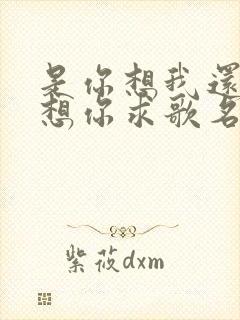 是你想我還
想你求歌名
紫莜dxm